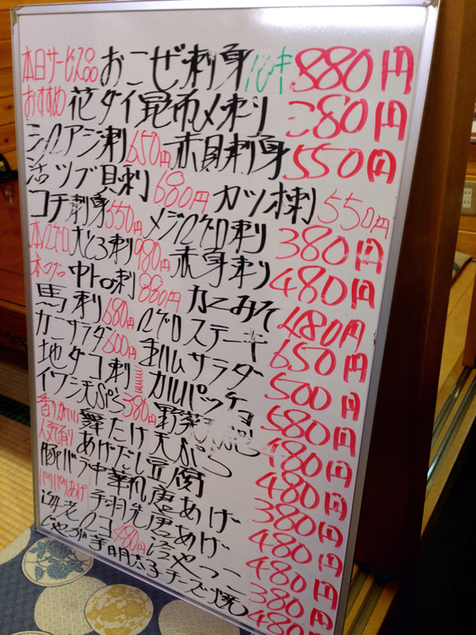 本日サービス品 おこぜ刺身 880円
おすすめ 花ダイ昆布〆刺 380円
シロアジ刺 650円 赤貝刺身 550円
活ツブ貝刺 680円 カツオ刺 550円
コチ刺身 550円 メジマグロ刺 380円
本マグロ 大とろ刺 980円 赤身刺 480円
本マグロ 中トロ刺 880円 カニみそ 480円
馬刺 680円 マグロステーキ 650円
カニサラダ 600円 ハムサラダ 500円
地ダコ刺 カルパッチョ 580円
イワシ天ぷら 580円 野菜天 480円
舞たけ天ぷら 480円
人気有り あげだし豆腐 380円
豚バラ中華風唐あげ 480円
パリパリあげ 手羽先唐あげ 480円
380円
明太子チーズ焼 480